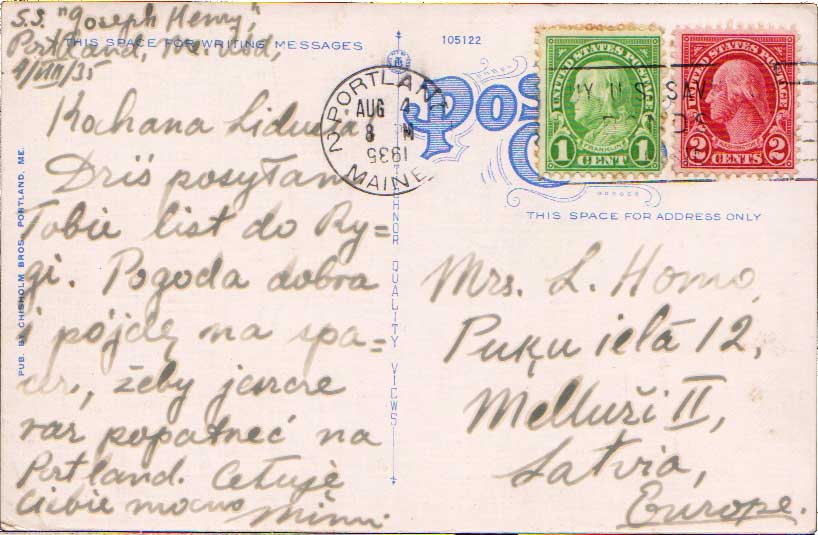 S.S. "Joseph Henry",
Portland, Me. Usd,
4/VIII/35
THIS SPACE FOR WRITING MESSAGES
105122
Kochana Lidusia
Dziś posyłam
Tobie list do Ry=
gi. Pogoda dobra
i pójdę na spa=
cer, żeby jeszcze
raz popatrzeć na
Portland. Całuję
Ciebie mocno
Mimi
PUB. BY CHISHOLM BROS. PORTLAND, ME.
TICHNOR QUALITY VIEWS
PORTLAND
AUG 4
8 PM
1935
MAINE
2
Post
UNITED STATES POSTAGE
FRANKLIN
1 CENT 1
UNITED STATES POSTAGE
2 CENTS 2
BUY U.S. SAV
THIS SPACE FOR ADDRESS ONLY
Mrs. L. Homo,
Puķu ielā 12,
Melluži II,
Latvia,
Europe.